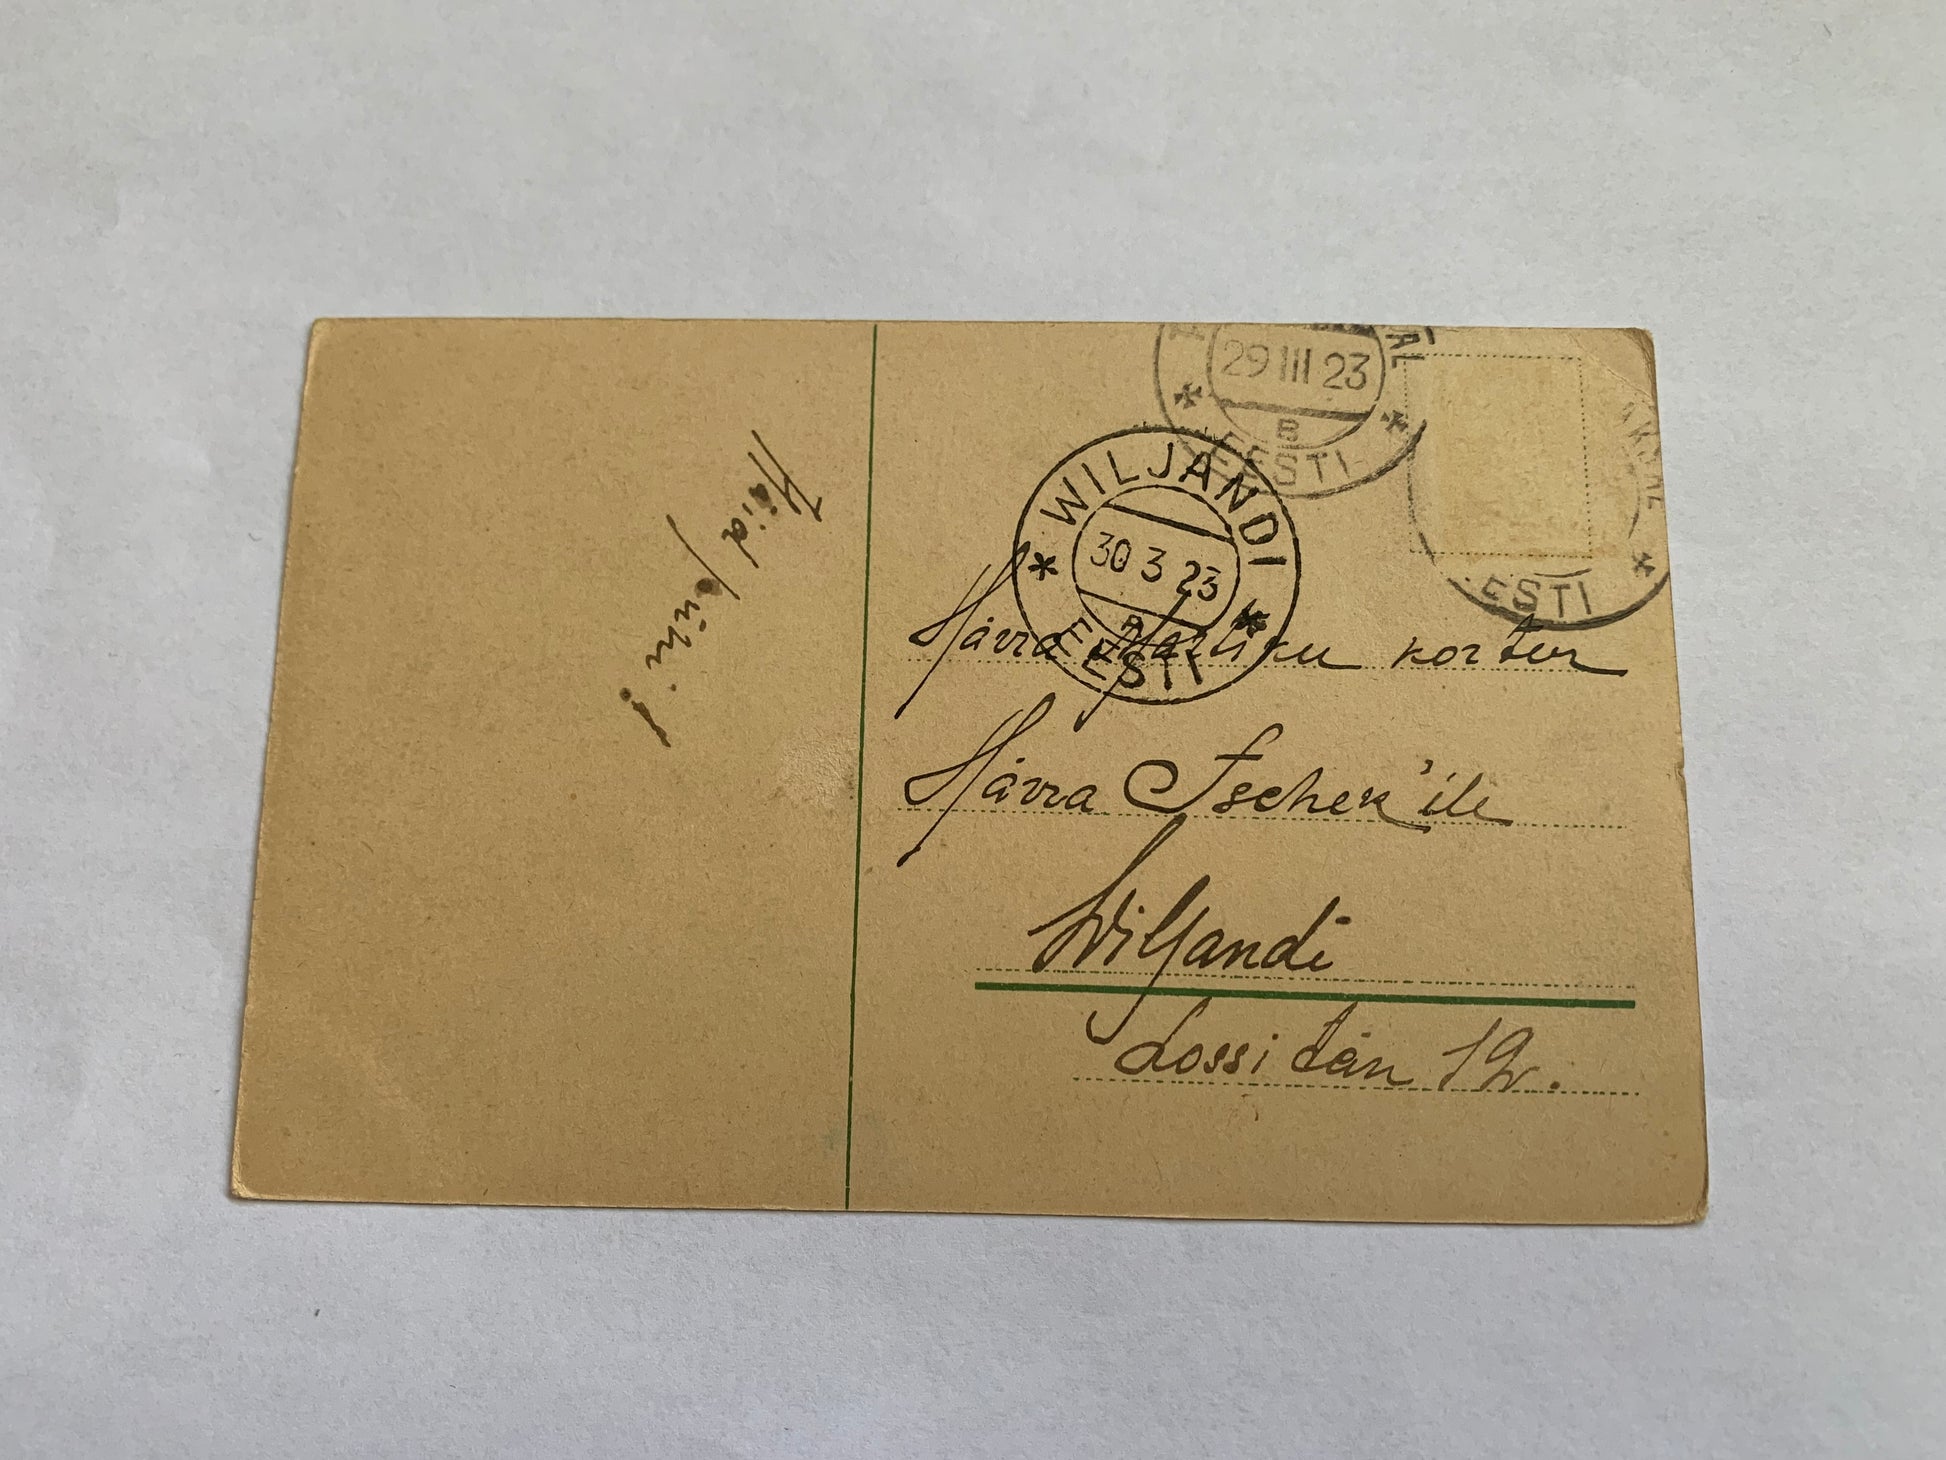 Häid pühi!
AL
29 III 23
B
EESTI
WILJANDI
30 3 23
EESTI
ESTI
Härra korter
Härra Tschek'ile
Wiljandi
Lossi tän 12.